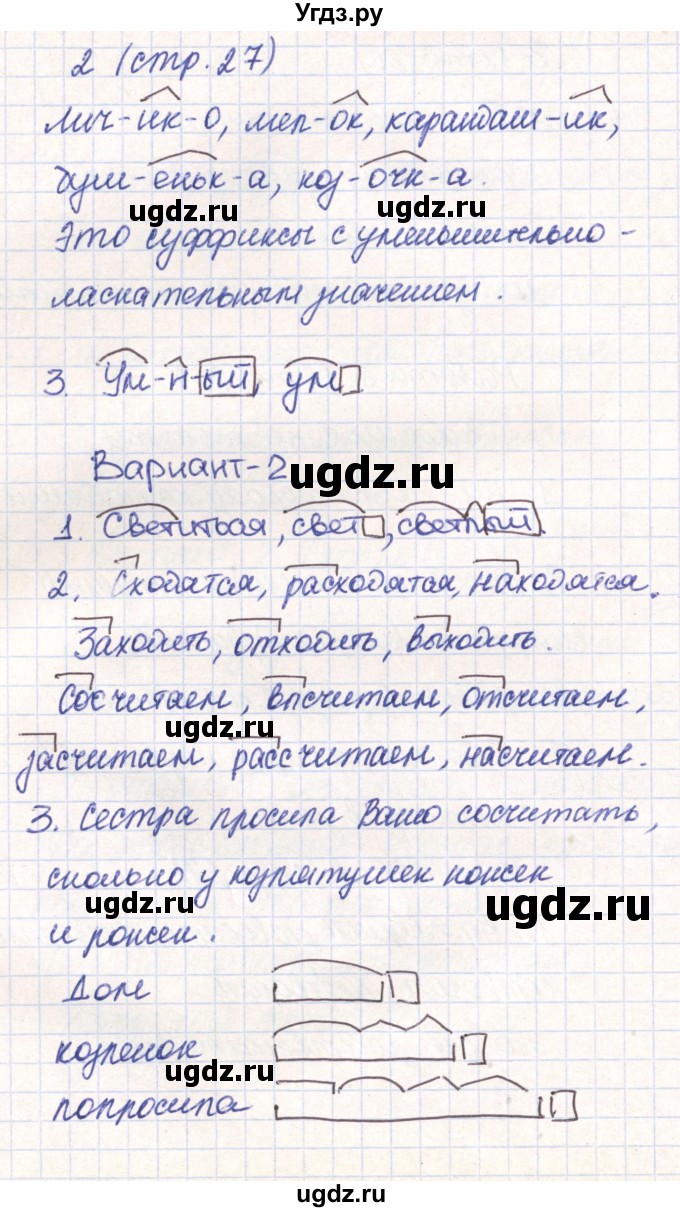 Угдз.ру
2 (стр. 27)
лич-ик-о, мел-ок, карандаш-ик,
душ-еньк-а, коз-очк-а.
ugdz.ru ugdz.ru
Это суффиксы с уменьшительно-
ласкательным значением.
3. Ум-н-ый, ум
Вариант-2
ugdz.ru
1. Светиться, свет, светлый.
2. Сходятся, расходятся, находятся.
Заходить, отходить, выходить.
Сосчитаем, впсчитаем, отсчитаем,
ugdz.ru
засчитаем, рассчитаем, насчитаем.
3. Сестра просила Ваню сосчитать,
сколько у козлятушек ножек
ugdz.ru ugdz.ru
и рожек.
Дом
козленок
ugdz.ru
попросила
ugdz.ru